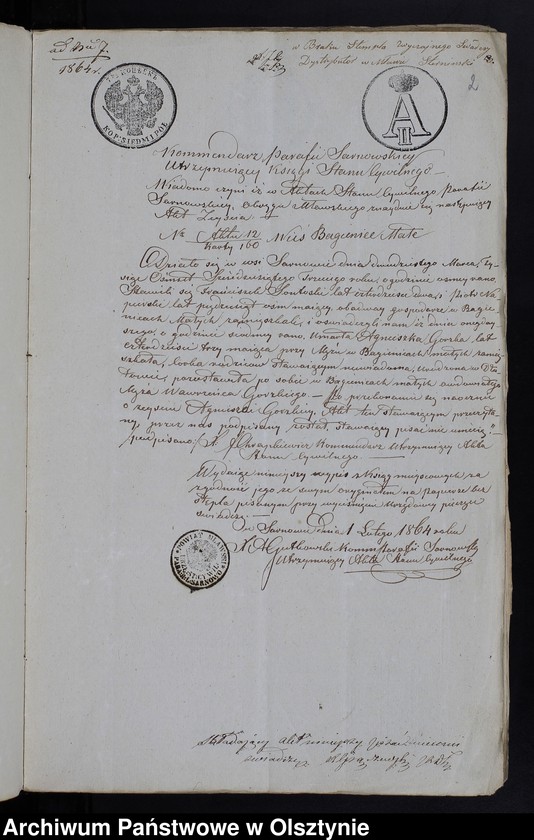 ad Nr 7.
1864 r.
w Braku Stempla zwyczajnego Świadczę
Dystrybutor w Mławie
2
KR. POLSKIE
KOP. SIEDM I PÓŁ
A II
Kommendarz Parafii Sarnowskiey
Utrzymujący Księgi Stanu Cywilnego
Wiadomo czyni iż w Aktach Stanu Cywilnego Parafii
Sarnowskiey, Okręgu Mławskiego znajduje się następujący
Akt Zeyścia
Nr Aktu 12 Wieś Bagienice Małe
Karty 160
Działo się we wsi Sarnowie dnia dwudziestego Marca, ty-
siąc Ośmset Sześćdziesiątego Trzeciego roku, o godzinie osmey rano.
Stawili się Franciszek lat czterdzieści dwa, i Piotr Na-
pierski lat pięćdziesiąt osm mający, obadwaj gospodarze w Bagie-
nicach Małych zamieszkali, i oświadczyli nam iż dnia onegday-
szego, o godzinie siodmey rano, Umarła Agnieszka Gorska lat
czterdzieści trzy mająca przy Mężu w Bagienicach małych zamie-
szkała, Corka rodziców stawającym niewiadoma, urodzona w
pozostawiła po sobie w Bagienicach małych owdowiałego
Męża Wawrzeńca Gorskiego — Po przekonaniu się naocznie
o zeyściu Agnieszki Gorskiey, Akt ten stawającym przeczyta-
ny, przez nas podpisany został, stawający pisać nie umieją —
podpisano X. J. Chrapkiewicz Kommendarz Utrzymujący Akta
Stanu Cywilnego.
Wydając niniejszy wypis z Ksiąg miejscowych za
zgodność jego ze swym oryginałem na papierze bez
stępla pisanym przy wyciśnieniu urzędowey pieczęci
świadczę. —
w Sarnowie dnia 1 Lutego 1864 roku
X. A Gutkowski Komm: Parafii Sarnowskiy
Utrzymujący Akta Stanu Cywilnego
POWIAT MŁAWSKI
SARNOWO
Składający akt niniejszy
świadczy
Archiwum Państwowe w Olsztynie